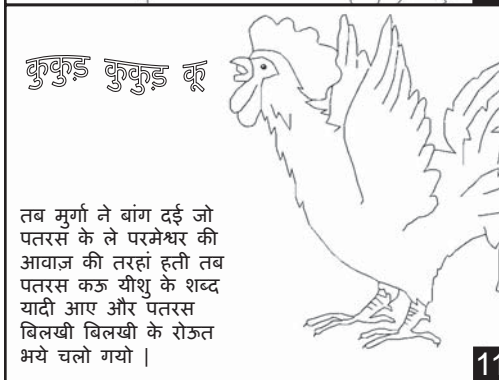 कुकुड़ कुकुड़ कू
तब मुर्गा ने बांग दई जो
पतरस के ले परमेश्वर की
आवाज़ की तरहां हती तब
पतरस कऊ यीशु के शब्द
यादी आए और पतरस
बिलखी बिलखी के रोऊत
भये चलो गयो |
11